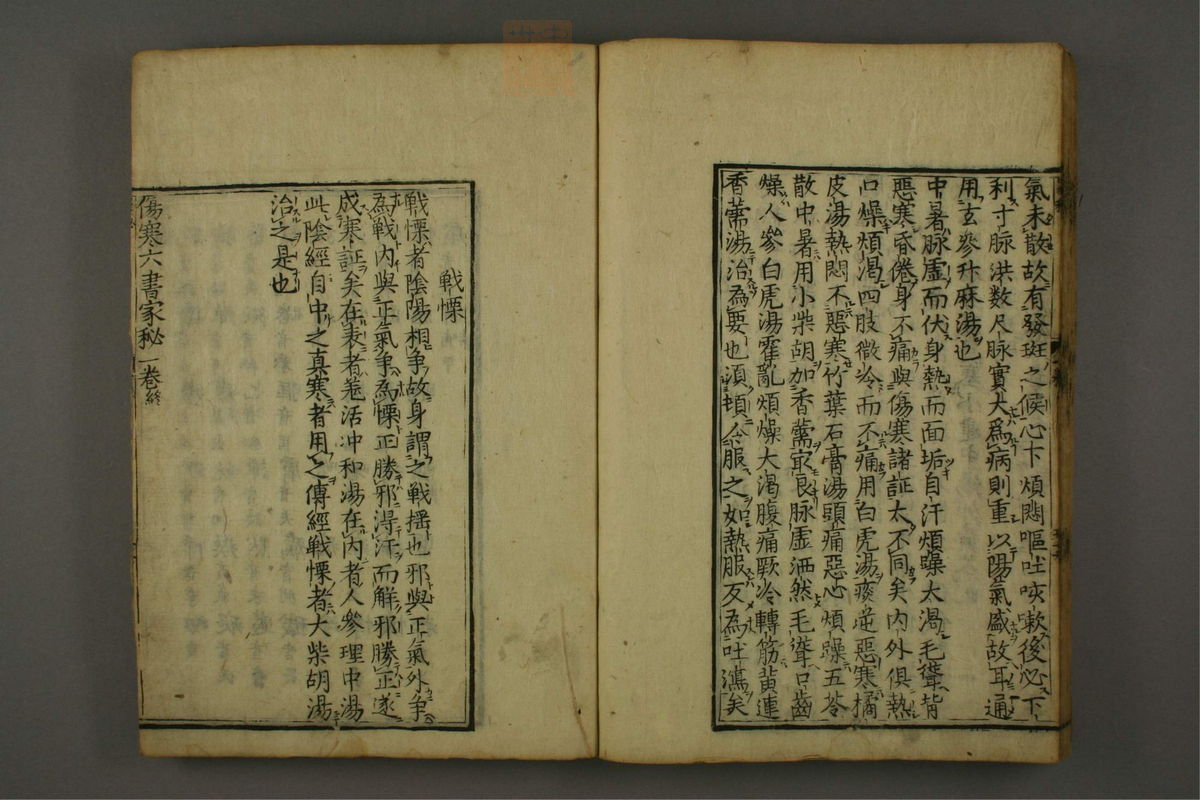 氣未散故有發斑之候心下煩悶嘔吐咳嗽後必下
利寸脉洪数尺脉實大為病則重以陽氣盛故耳通
用玄參升麻湯也
中暑脉虛而伏身熱而面垢自汗煩躁大渴毛聳背
惡寒昏倦身不痛與傷寒諸証大不同矣内外俱熱
口燥煩渴四肢微冷而不痛用白虎湯痰逆惡寒橘
皮湯熱悶不惡寒竹葉石膏湯頭痛惡心煩躁五苓
散中暑用小柴胡加香薷㝡良脉虛洒然毛聳口齒
燥人參白虎湯霍亂煩燥大渴腹痛厥冷轉筋黄連
香薷湯治為要也須頓冷服之如熱服反為吐瀉矣
戦慄
戦慄者陰陽相争故身謂之戦揺也邪與正氣外争
為戦内與正氣争為慄正勝邪淂汗而解邪勝正遂
成寒証矣在表者羗活冲和湯在内者人參理中湯
此陰經自中之真寒者用之傳經戦慄者大柴胡湯
治之是也
傷寒六書家秘一卷終